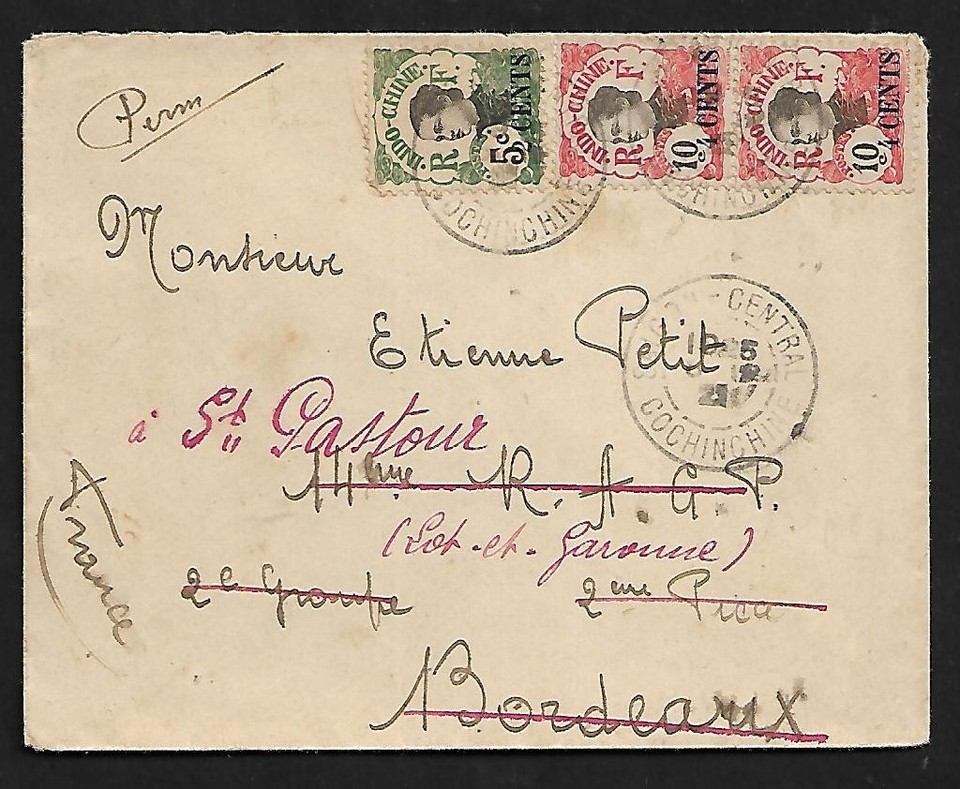 INDO-CHINE. R F. 5c. 2 CENTS
INDO-CHINE. R F. 10c. 4 CENTS
INDO-CHINE. R F. 10c. 4 CENTS
COCHINCHINE
Perm
Monsieur
SAIGON - CENTRAL
COCHINCHINE
Etienne Petit
à St Pastour
14ème R. A. C. P.
(Lot-et-Garonne)
2e Groupe 2ème Pièce
Bordeaux
France